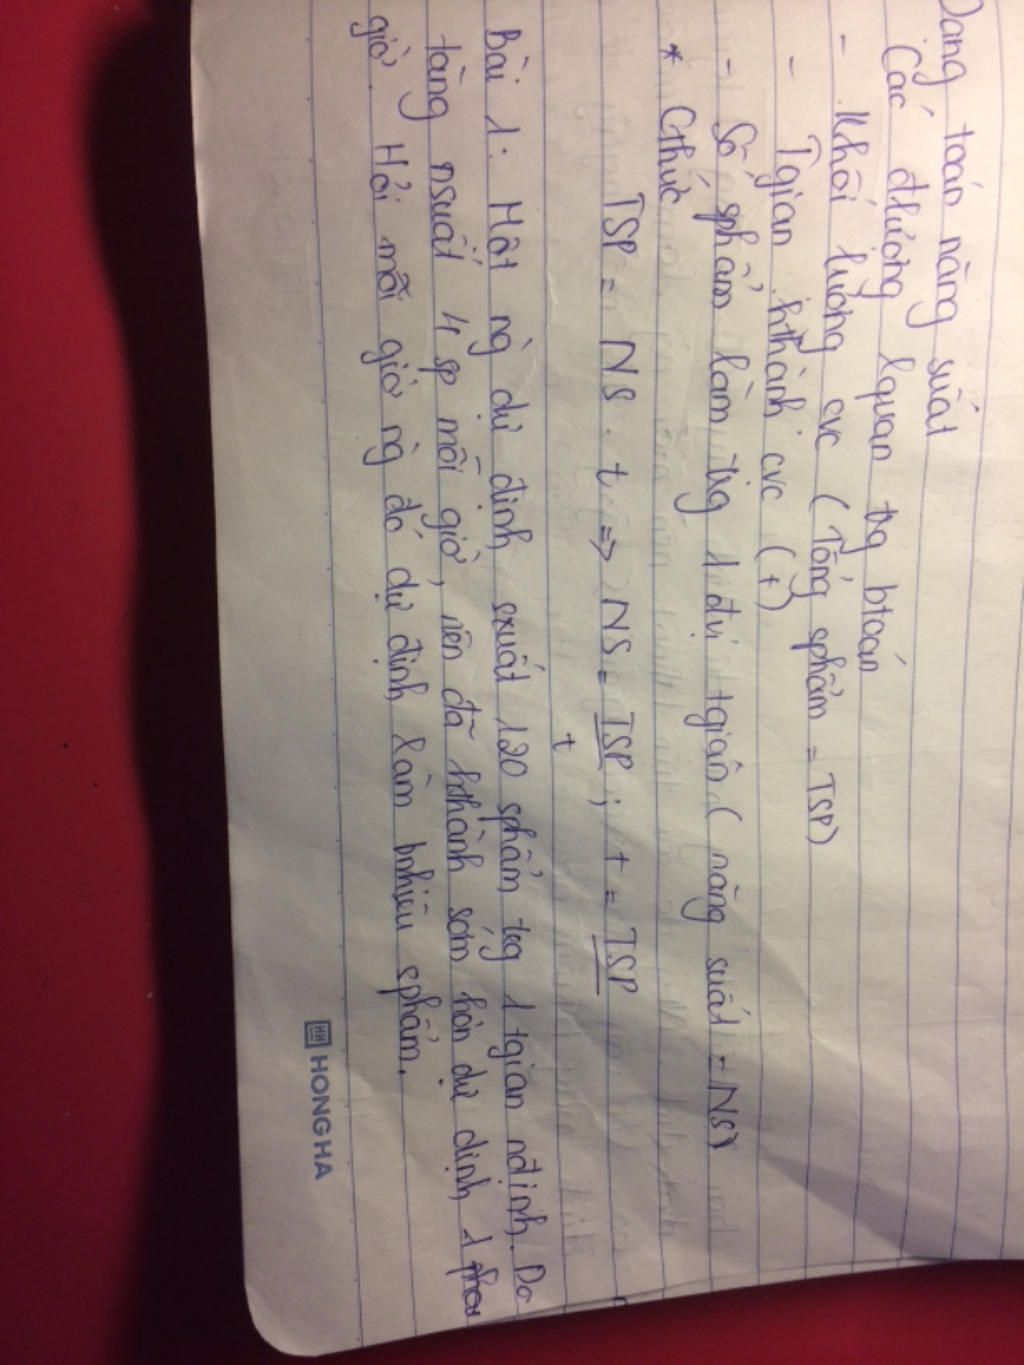 Dạng toán năng suất
Các đlượng lquan tg btoán
- Khối lượng cvc (Tổng sphẩm = TSP)
- Tgian hthành cvc (t)
- Số sphẩm làm tg 1 đvị tgian (năng suất = NS)
* Cthức
TSP = NS . t => NS = TSP ; t = TSP
t
Bài 1: Một ng dự định sxuất 120 sphẩm tg 1 tgian nđịnh. Do
tăng nsuất 4 sp mỗi giờ, nên đã hthành sớm hơn dự định 1
giờ. Hỏi mỗi giờ ng đó dự định làm bnhiêu sphẩm.
HONG HA